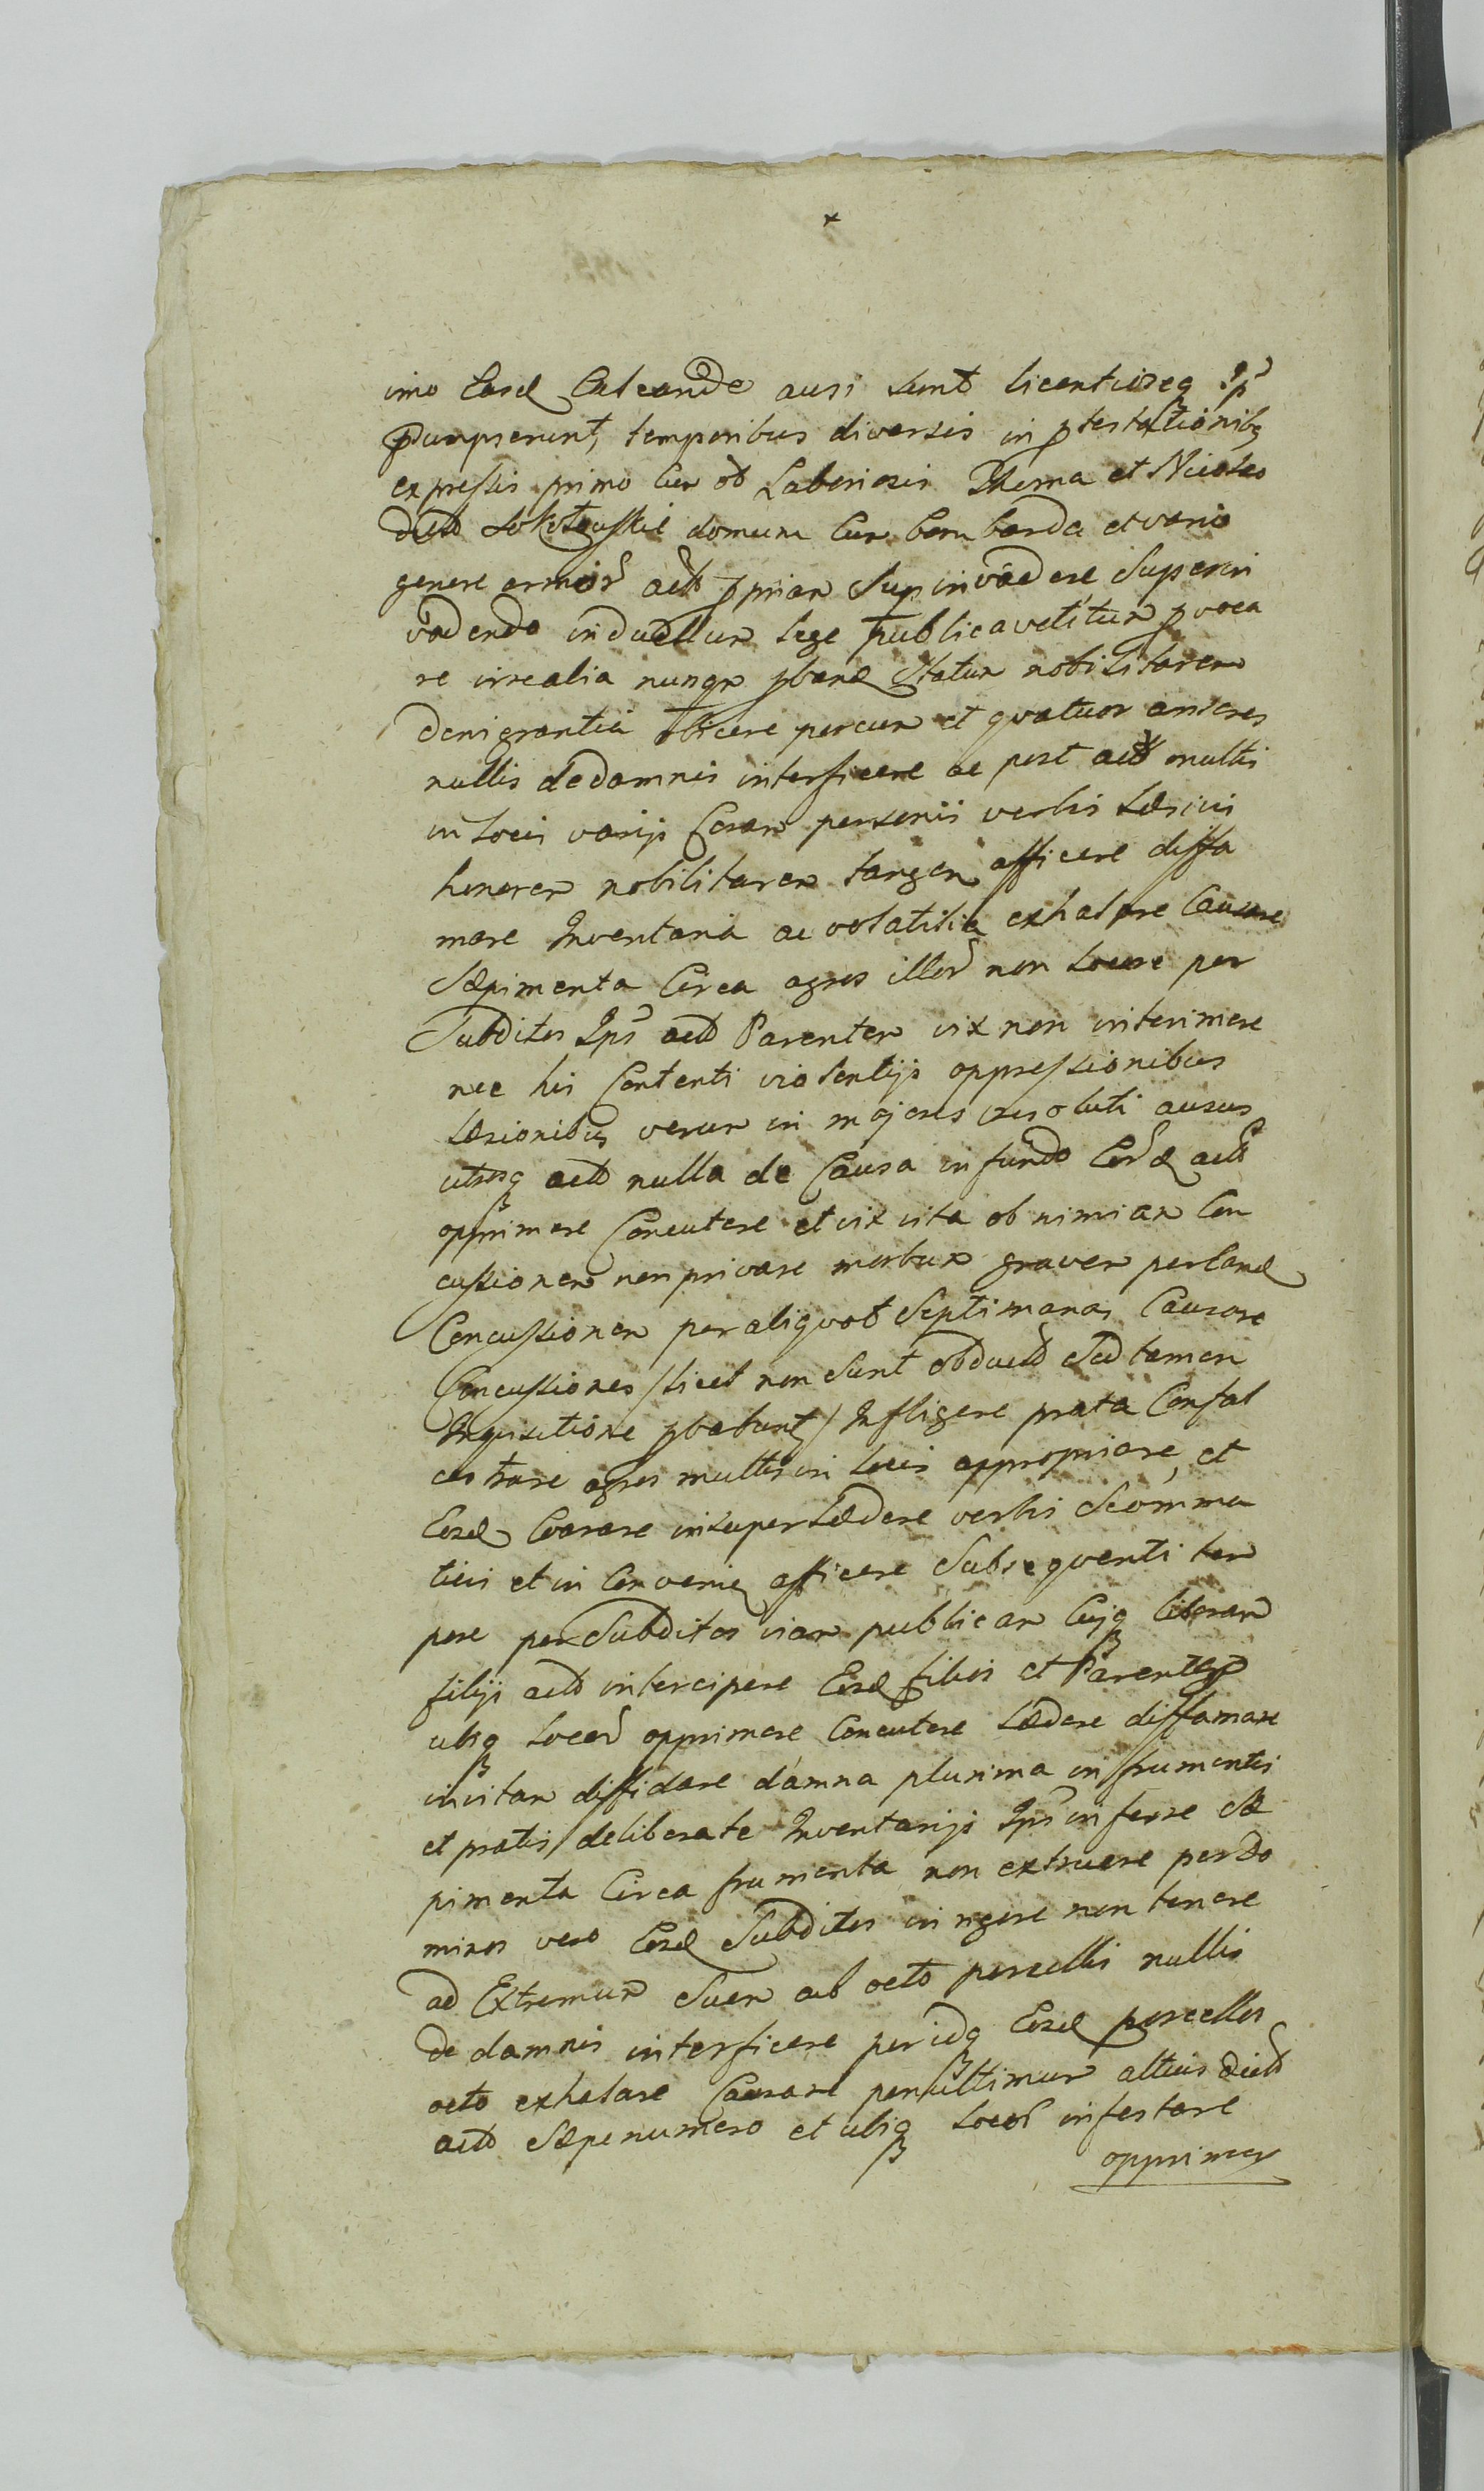 imo Easd Calcande ausi sunt licentioseq Ips
pumpserunt, temporibus diversis in ptestationibq
expressis primo cum ad Laboriosis Thoma et Nicolao
dictis domum Cum bombarda et vario
genere armor actr ppriam Sup invadere Superin
vadendo in duellum lege publica vetitum pvoca
re irrealia nunqm pband Statum nobilitarem
denigrantia obicere porcum et qvatuor anseres
nullis de damnis interficere ac post act multis
in locis varijs Coram personis verbis læsivis
honorem nobilitarem tangen afficere diffa
mare Inventaria ac volatilia exhalare Causare
Sæpimenta Circa agros illor non locare per
Subditos Ips act Parentem vix non interimere
nec his Contenti violentijs oppressionibus
læsionibus verum in majores resoluti ausus
utrosq act nulla de Causa in fundo actr
opprimere Concutere et vix vita ob nimiam Con
cussionem non privare morbum gravem per
Concussionem per aliqvot Septimanas Causare
Concussiones /licet non sunt obduct Sed tamen
Inquisitione pbabunt/ Infligere prata Confal
castrare agros multis in locis appropriare, et
Eosd Coarare insuper lædere verbis Scomma
ticis et in Convenien afficere Subseqventi tem
pore per Subditos viam publicam Cujq liberam
filijs act intercipere Eosd filios et Parentes
ubiq locor opprimere Concutere lædere diffamare
in vitam diffidare damna plurima in frumentis
et pratis deliberate Inventarijs Ips inferre Sæ
pimenta Circa frumenta non extruere per do
minos vero Eosd Subditos in rigore non tenere
ad Extremum Suem ab octo porcellis nullis
de damnis interficere per idq Eosd porcellos
octo exhalare Causare penultimum altius dict
act Sæpenumero et ubiq locor infestare
opprimer